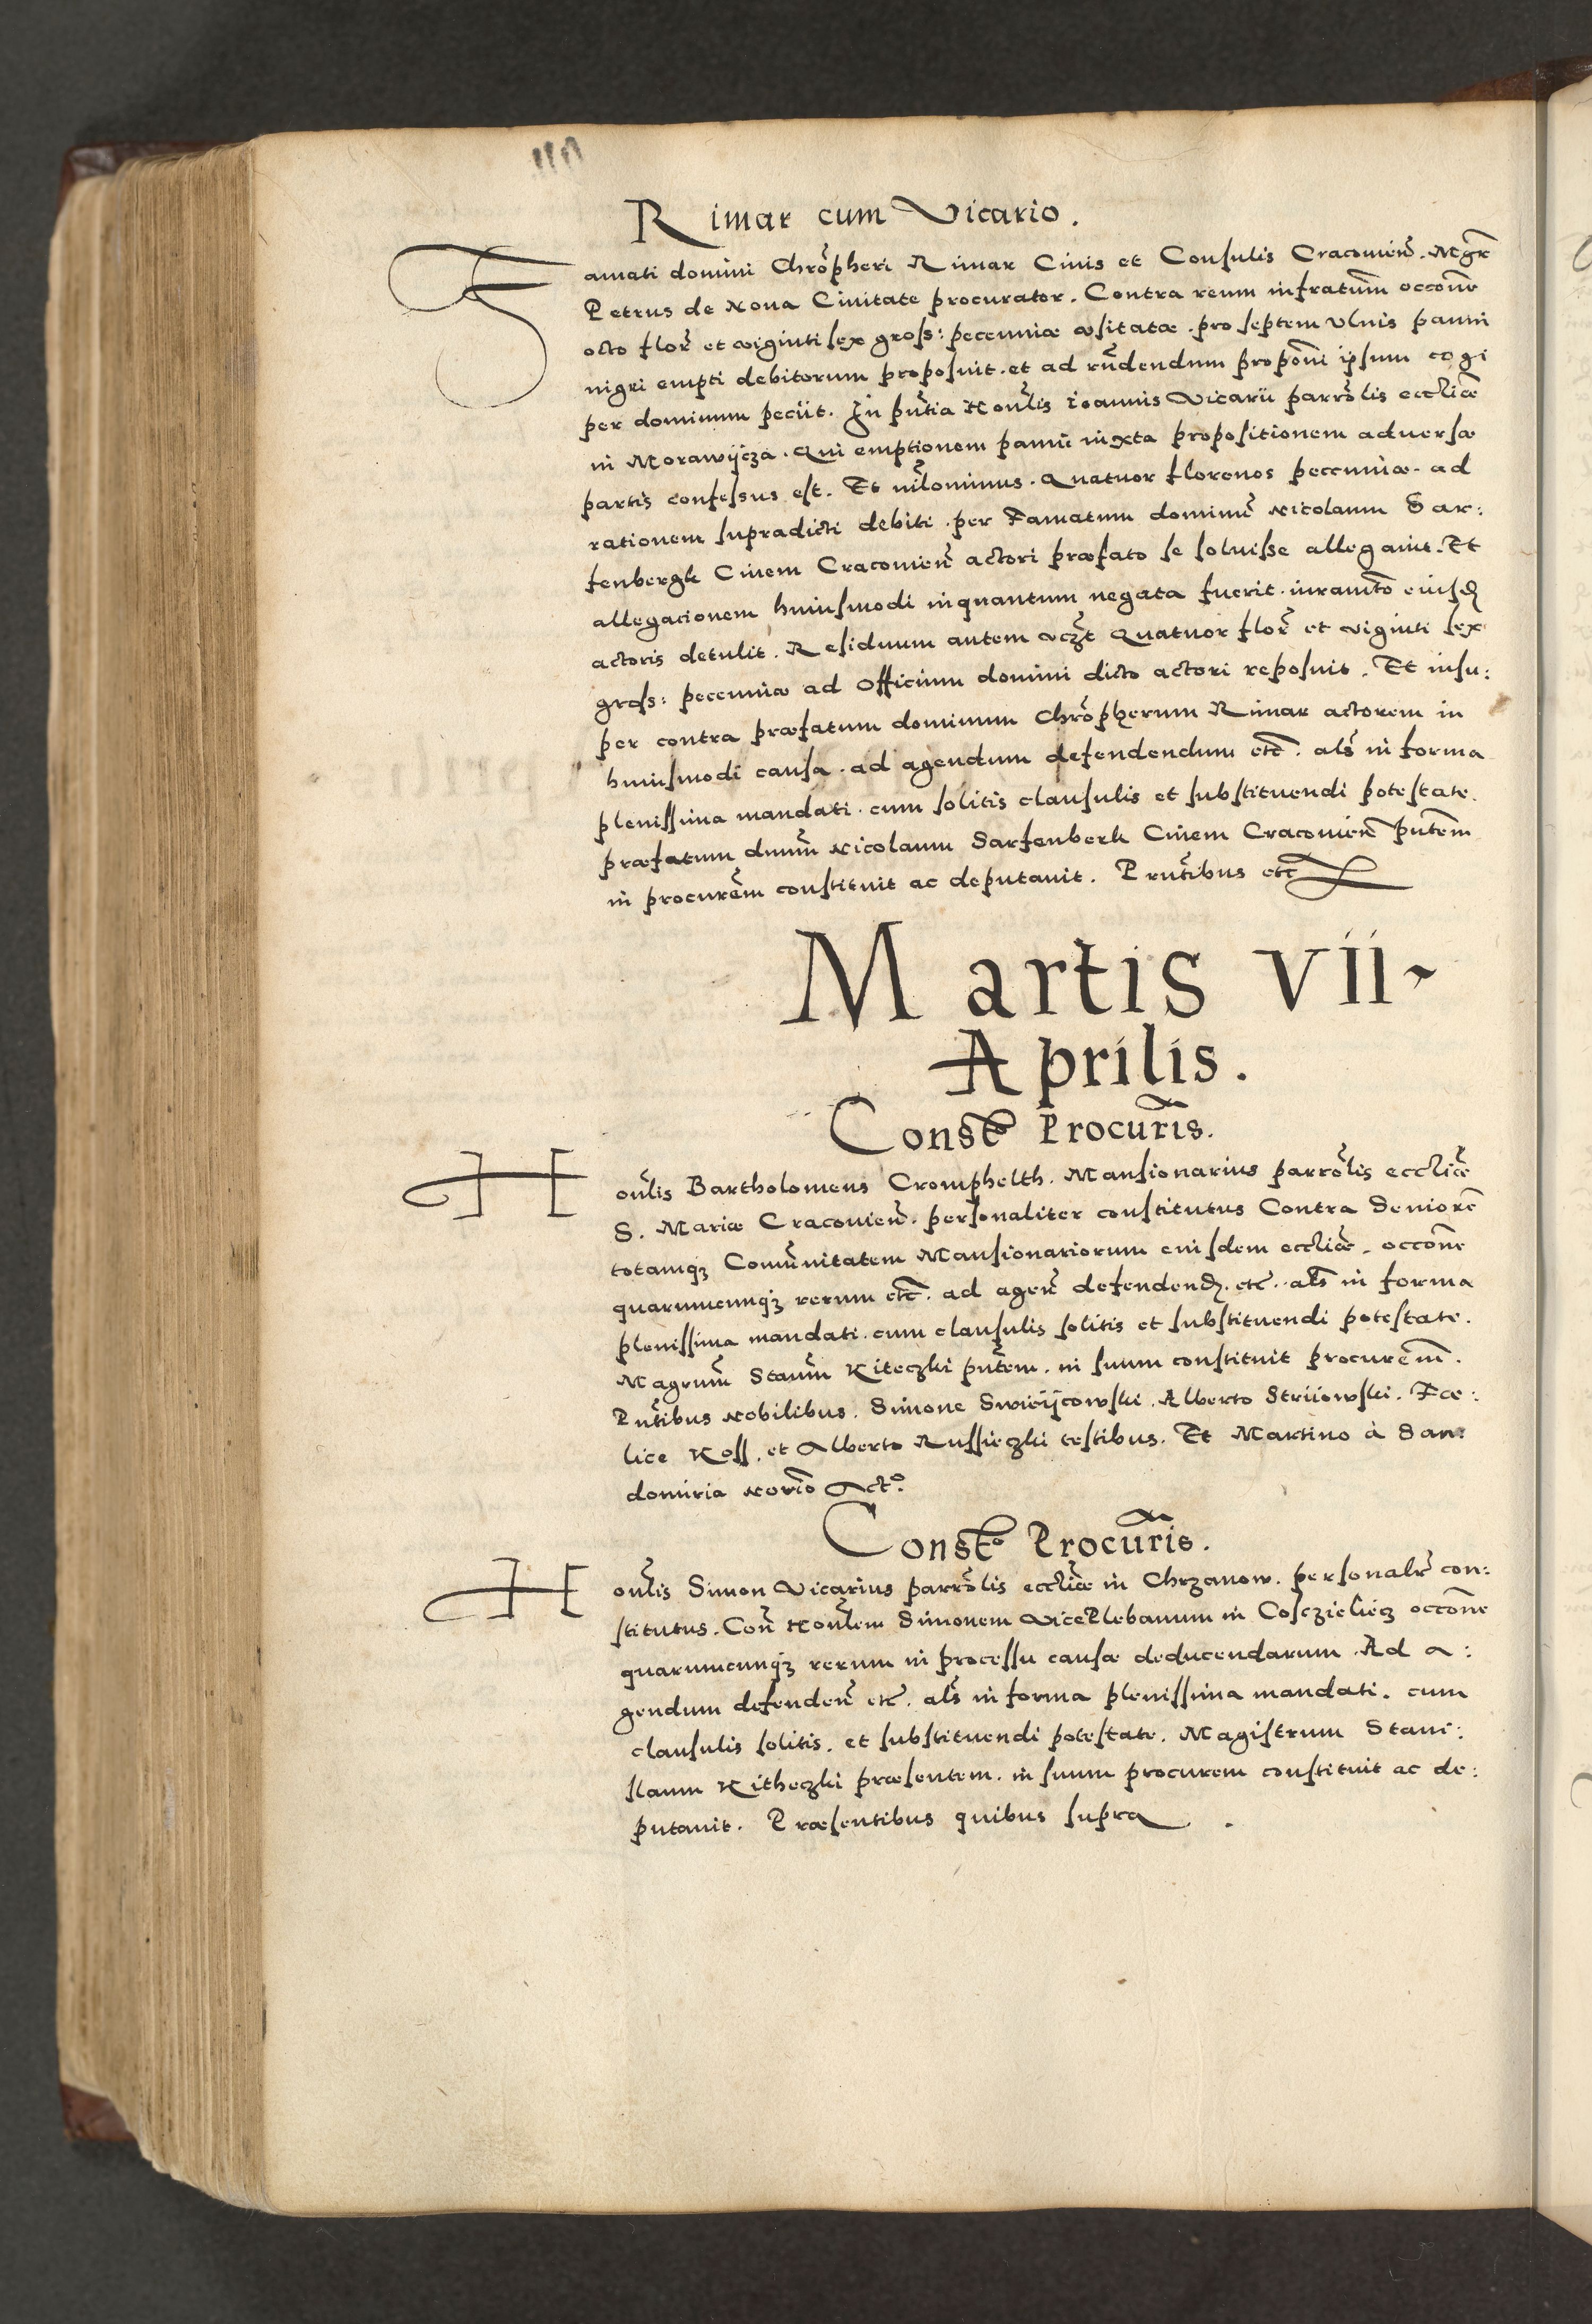 Rimar cum Vicario.
Famati domini Chro͂pheri Rimar Ciuis et Consulis Cracouien͂. Mgr͂
Petrus de Noua Ciuitate procurator. Contra reum infratum͂ occone͂
octo flor͂ et viginti sex gross: pecuniæ vsitatæ. pro septem vlnis panni
nigri empti debitorum proposuit. et ad rn͂dendum proponi͂ ipsum cogi
per dominum peciit. In pn͂tia Honl͂is Ioannis Vicarii parro͂lis eccliæ͂
in Morawÿcza. Qui emptionem panni iuxta propositionem aduersæ
partis confessus est. Et nil͂ominus. Quatuor florenos pecuniæ. ad
rationem supradicti debiti. per Famatum dominu͂ Nicolaum Sar:
fenbergk Ciuem Cracouien͂ actori præfato se soluisse allegauit. Et
allegacionem huiusmodi inquantum negata fuerit. iuramto͂ eiusd͂
actoris detulit. Residuum autem vcz͂t Quatuor flor͂ et viginti sex
gross: pecuniæ ad Officium domini dicto actori reposuit. Et insu:
per contra præfatum dominum Chro͂pherum Rimar actorem in
huiusmodi causa. ad agendum defendendum etc͂. als͂ in forma
plenissima mandati. cum solitis clausulis et substituendi potestate.
præfatum dnum͂ Nicolaum Sarfenberk Ciuem Cracouien͂ pn͂tem
in procurem͂ constituit ac deputauit. Prn͂tibus etc͂
Martis vii
Aprilis.
Const͂o Procur͂is.
Honl͂is Bartholomeus Cromphelth. Mansionarius parro͂lis eccliæ͂
S. Mariæ Cracouien͂. personaliter constitutus Contra Seniore͂
totamqꝫ Comu͂nitatem Mansionariorum eiusdem eccliæ͂. occone͂
quarumcunqꝫ rerum etc͂. ad agen͂ defendend͂. etc͂. als͂ in forma
plenissima mandati. cum clausulis solitis et substituendi potestate.
Magrum͂ Staum͂ Kiteczki pn͂tem. in suum constituit procurem͂.
Pn͂tibus Nobilibus. Simone Swieÿcowski. Alberto Striiowski. Fœ:
lice Koss. et Alberto Russieczki testibus. Et Martino à San:
domiria Norio͂ Act͂o.
Const͂o Procur͂is.
Honl͂is Simon Vicarius parro͂lis eccliæ͂ in Chrzanow. personalr͂ con:
stitutus. Con͂ Honl͂em Simonem vicePlebanum in Cosczieliecz occone͂
quarumcunqꝫ rerum in processu causæ deducendarum. Ad a:
gendum defenden͂ etc͂. als͂ in forma plenissima mandati. cum
clausulis solitis. et substituendi potestate. Magistrum Stani:
slaum Kitheczki præsentem. in suum procurem constituit ac de:
putauit. Præsentibus quibus supra.